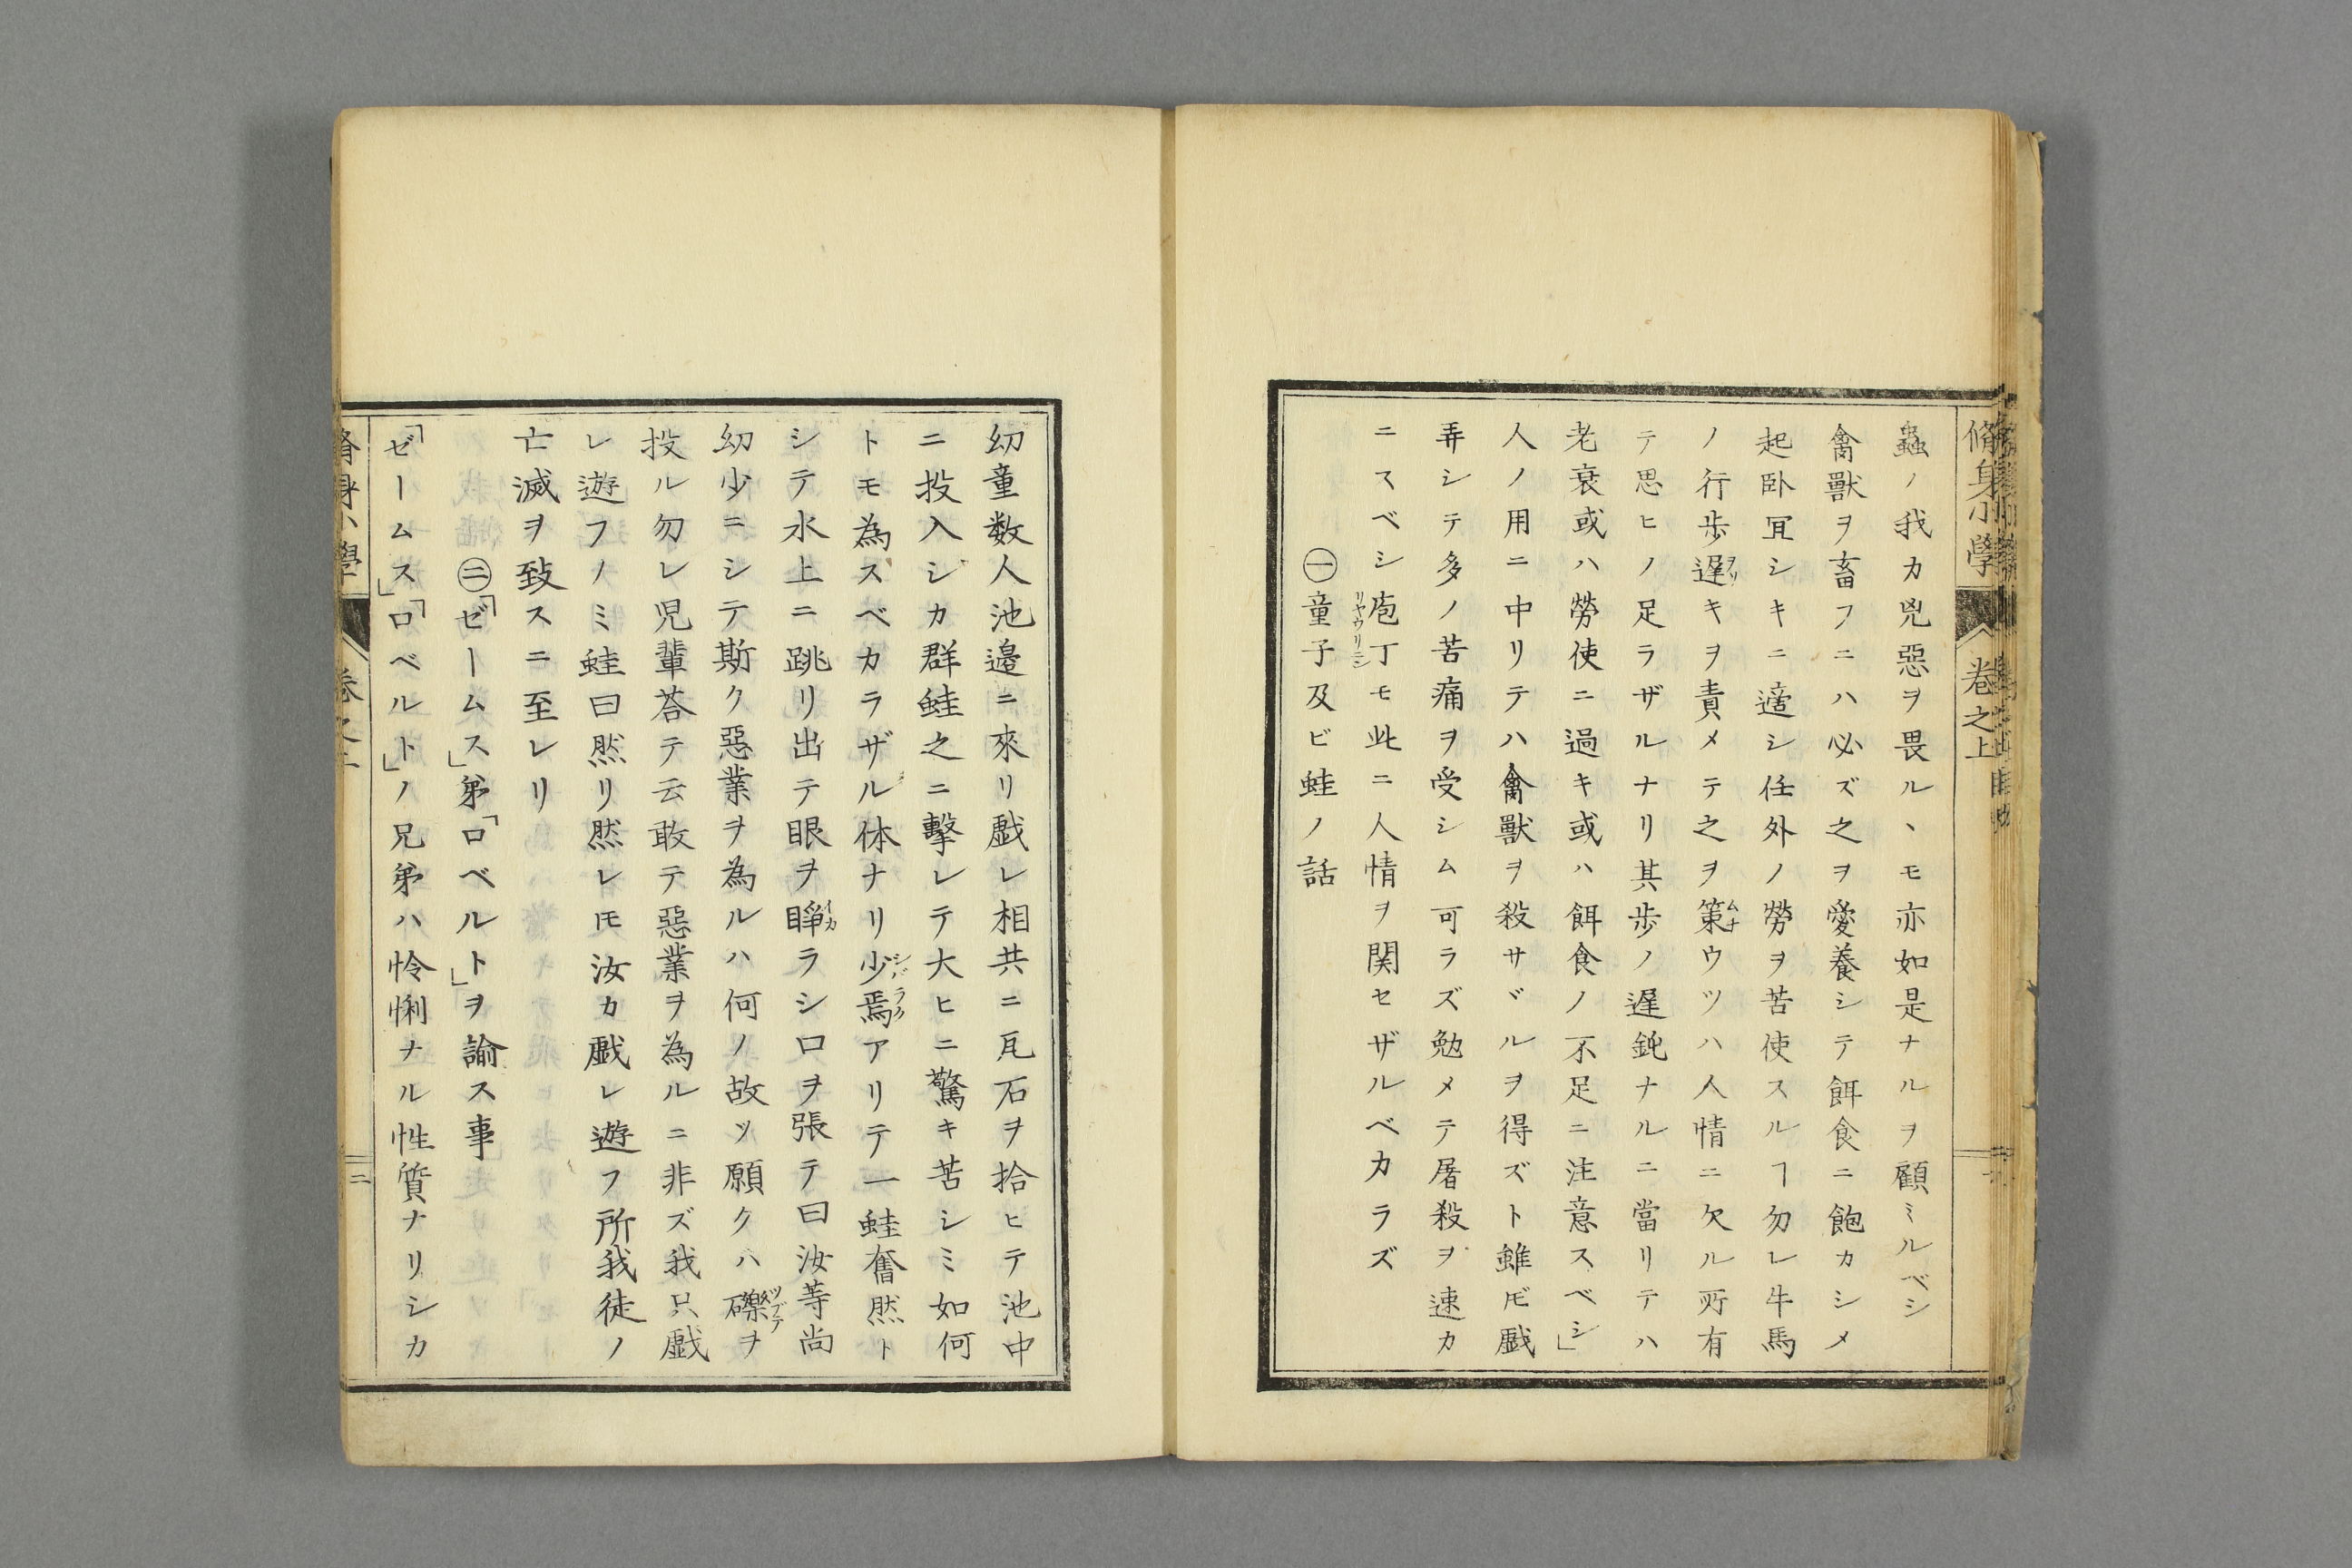 脩身小學 卷之上
蟲ノ我カ兇惡ヲ畏ル丶モ亦如是ナルヲ顧ミルベシ
禽獸ヲ畜フニハ必ズ之ヲ愛養シテ餌食ニ飽カシメ
起卧冝シキニ適シ任外ノ勞ヲ苦使スルヿ勿レ牛馬
ノ行歩遅キヲ責メテ之ヲ策ウツハ人情ニ欠ル所有
テ思ヒノ足ラザルナリ其歩ノ遅鈍ナルニ當リテハ
老衰或ハ勞使ニ過キ或ハ餌食ノ不足ニ注意スベシ」
人ノ用ニ中リテハ禽獸ヲ殺サヾルヲ得ズト雖𪜈戯
弄シテ多ノ苦痛ヲ受シム可ラズ勉メテ屠殺ヲ速カ
ニスベシ庖丁モ此ニ人情ヲ関セザルベカラズ
リヤウリニン
㊀童子及ビ蛙ノ話
幼童数人池邉ニ來リ戯レ相共ニ瓦石ヲ拾ヒテ池中
ニ投入シカ群蛙之ニ擊レテ大ヒニ驚キ苦シミ如何
トモ為スベカラザル体ナリ少焉アリテ一蛙奮然ト
シバラク
シテ水上ニ跳リ出テ眼ヲ睜ラシ口ヲ張テ曰汝等尚
イカ
幼少ニシテ斯ク惡業ヲ為ルハ何ノ故ソ願クハ礫ヲ
ツブテ
投ル勿レ児輩荅テ云敢テ惡業ヲ為ルニ非ズ我只戯
レ遊フノミ蛙曰然リ然レ𪜈汝カ戯レ遊フ所我徒ノ
亡滅ヲ致スニ至レリ
㊁「ゼームス」弟「ロベルト」ヲ諭ス事
「ゼームス」「ロベルト」ノ兄弟ハ怜悧ナル性質ナリシカ
二